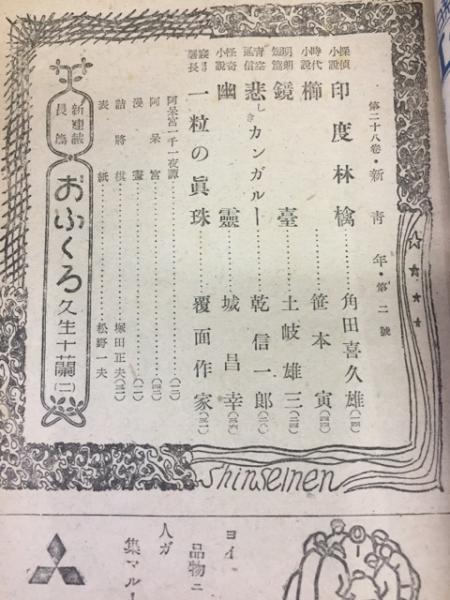 第二十八卷・新青年・第二號
探偵小說 印度林檎 角田喜久雄
時代小說 櫛 笹本寅
明朗短篇 鏡臺 土岐雄三
青空通信 悲しきカンガルー 乾信一郎
怪奇小說 幽靈 城昌幸
一粒の眞珠 覆面作家
阿呆宮一千一夜譚
阿呆宮
漫畫
詰將棋 塚田正夫
表紙 松野一夫
新連載長篇 おふくろ 久生十蘭 (二)
Shinseinen
ヨイ
品物ニ
人ガ
集マルー